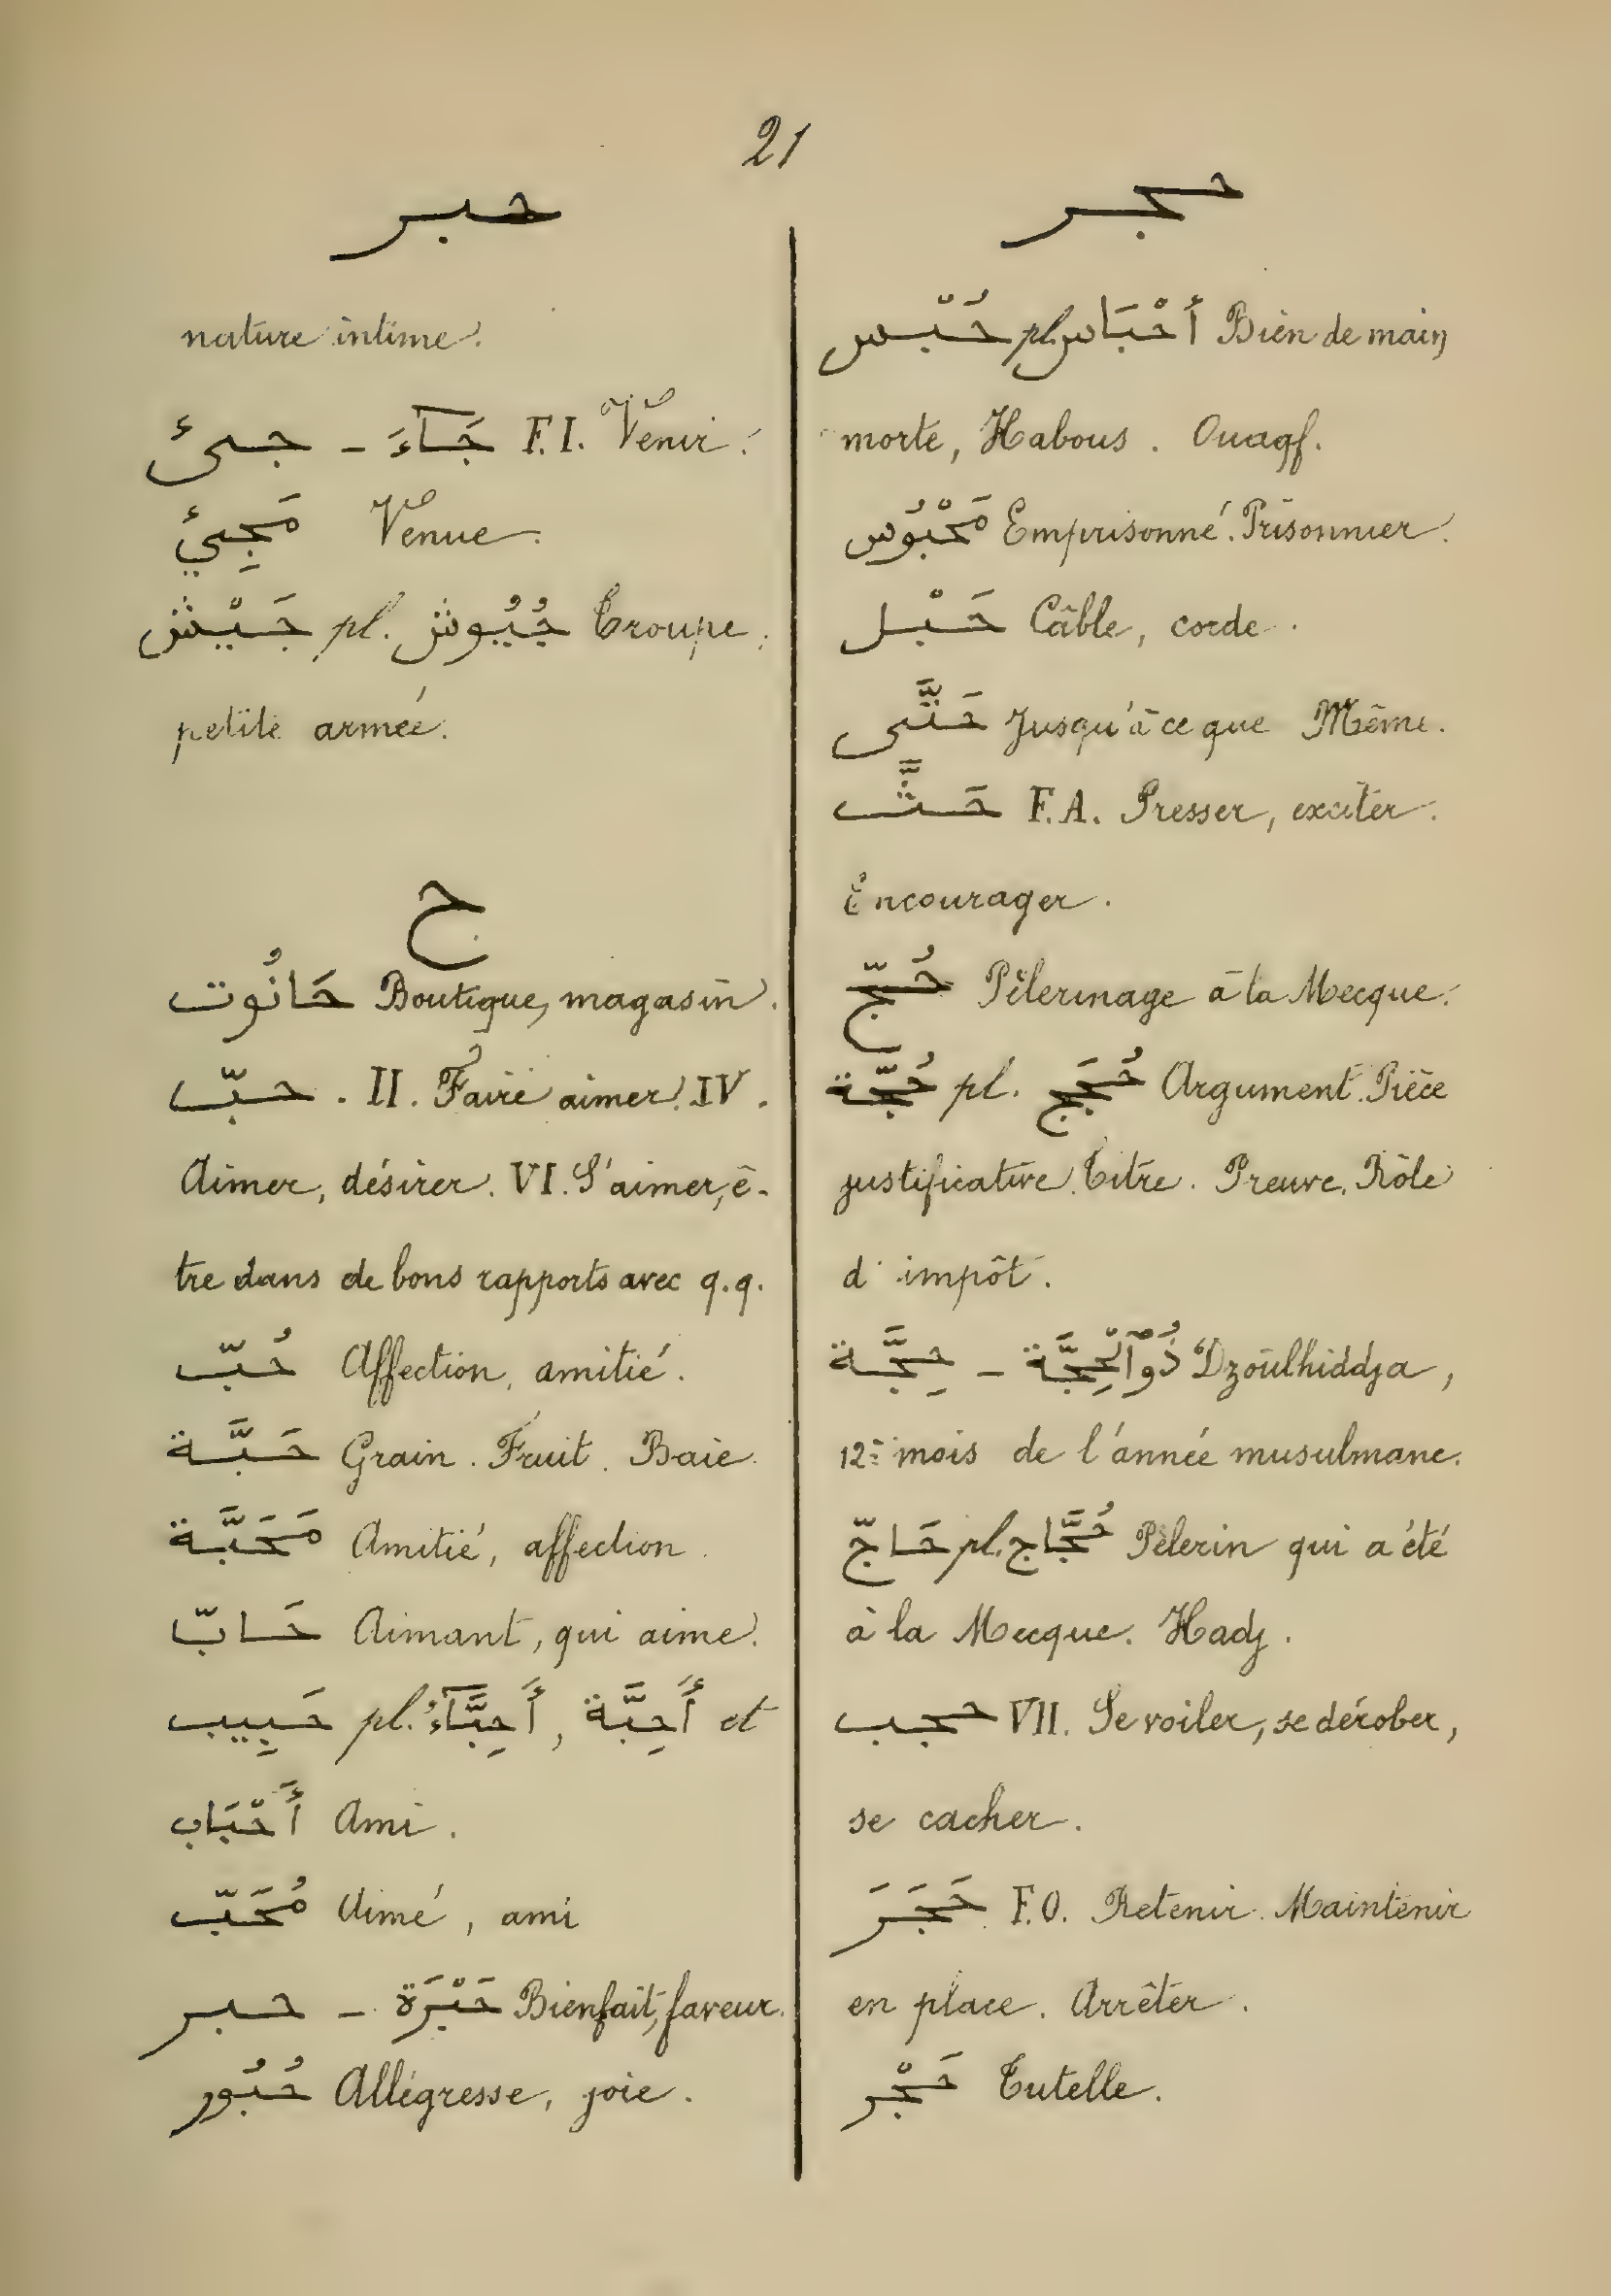 21
حبر
nature intime.
جىئ - جَآءَ F.I. Venir.
مَجِيئ Venue.
جَيْش pl. جُيُوش Troupe,
petite armée.
ح
حَانُوت Boutique, magasin.
حبّ . II. Faire aimer. IV.
Aimer, désirer. VI. S'aimer, ê-
tre dans de bons rapports avec q.q.
حُبّ Affection, amitié.
حَبَّة Grain. Fruit. Baie.
مَحَبَّة Amitié, affection.
حَابّ Aimant, qui aime.
حَبِيب pl. أَحِبَّآءُ, أَحِبَّة et
أَحْبَاب Ami.
مُحَبّ Aimé, ami
حبر - حَبْرَة Bienfait, faveur.
حُبُور Allégresse, joie.
حجر
حُبْس pl. أَحْبَاس Bien de main
morte, Habous. Ouaqf.
مَحْبُوس Emprisonné. Prisonnier.
حَبْل Câble, corde.
حَتَّى Jusqu'à ce que Même.
حَثَّ F.A. Presser, exciter.
Encourager.
حُجّ Pèlerinage à la Mecque.
حُجَّة pl. حُجَج Argument. Pièce
justificative. Titre. Preuve. Rôle
d'impôt.
حِجَّة - ذُو ٱلْحِجَّة Dzoûlhiddja,
12e mois de l'année musulmane.
حَاجّ pl. حُجَّاج Pèlerin qui a été
à la Mecque. Hadj.
حجب VII. Se voiler, se dérober,
se cacher.
حَجَرَ F.O. Retenir. Maintenir
en place. Arrêter.
حَجْر Tutelle.